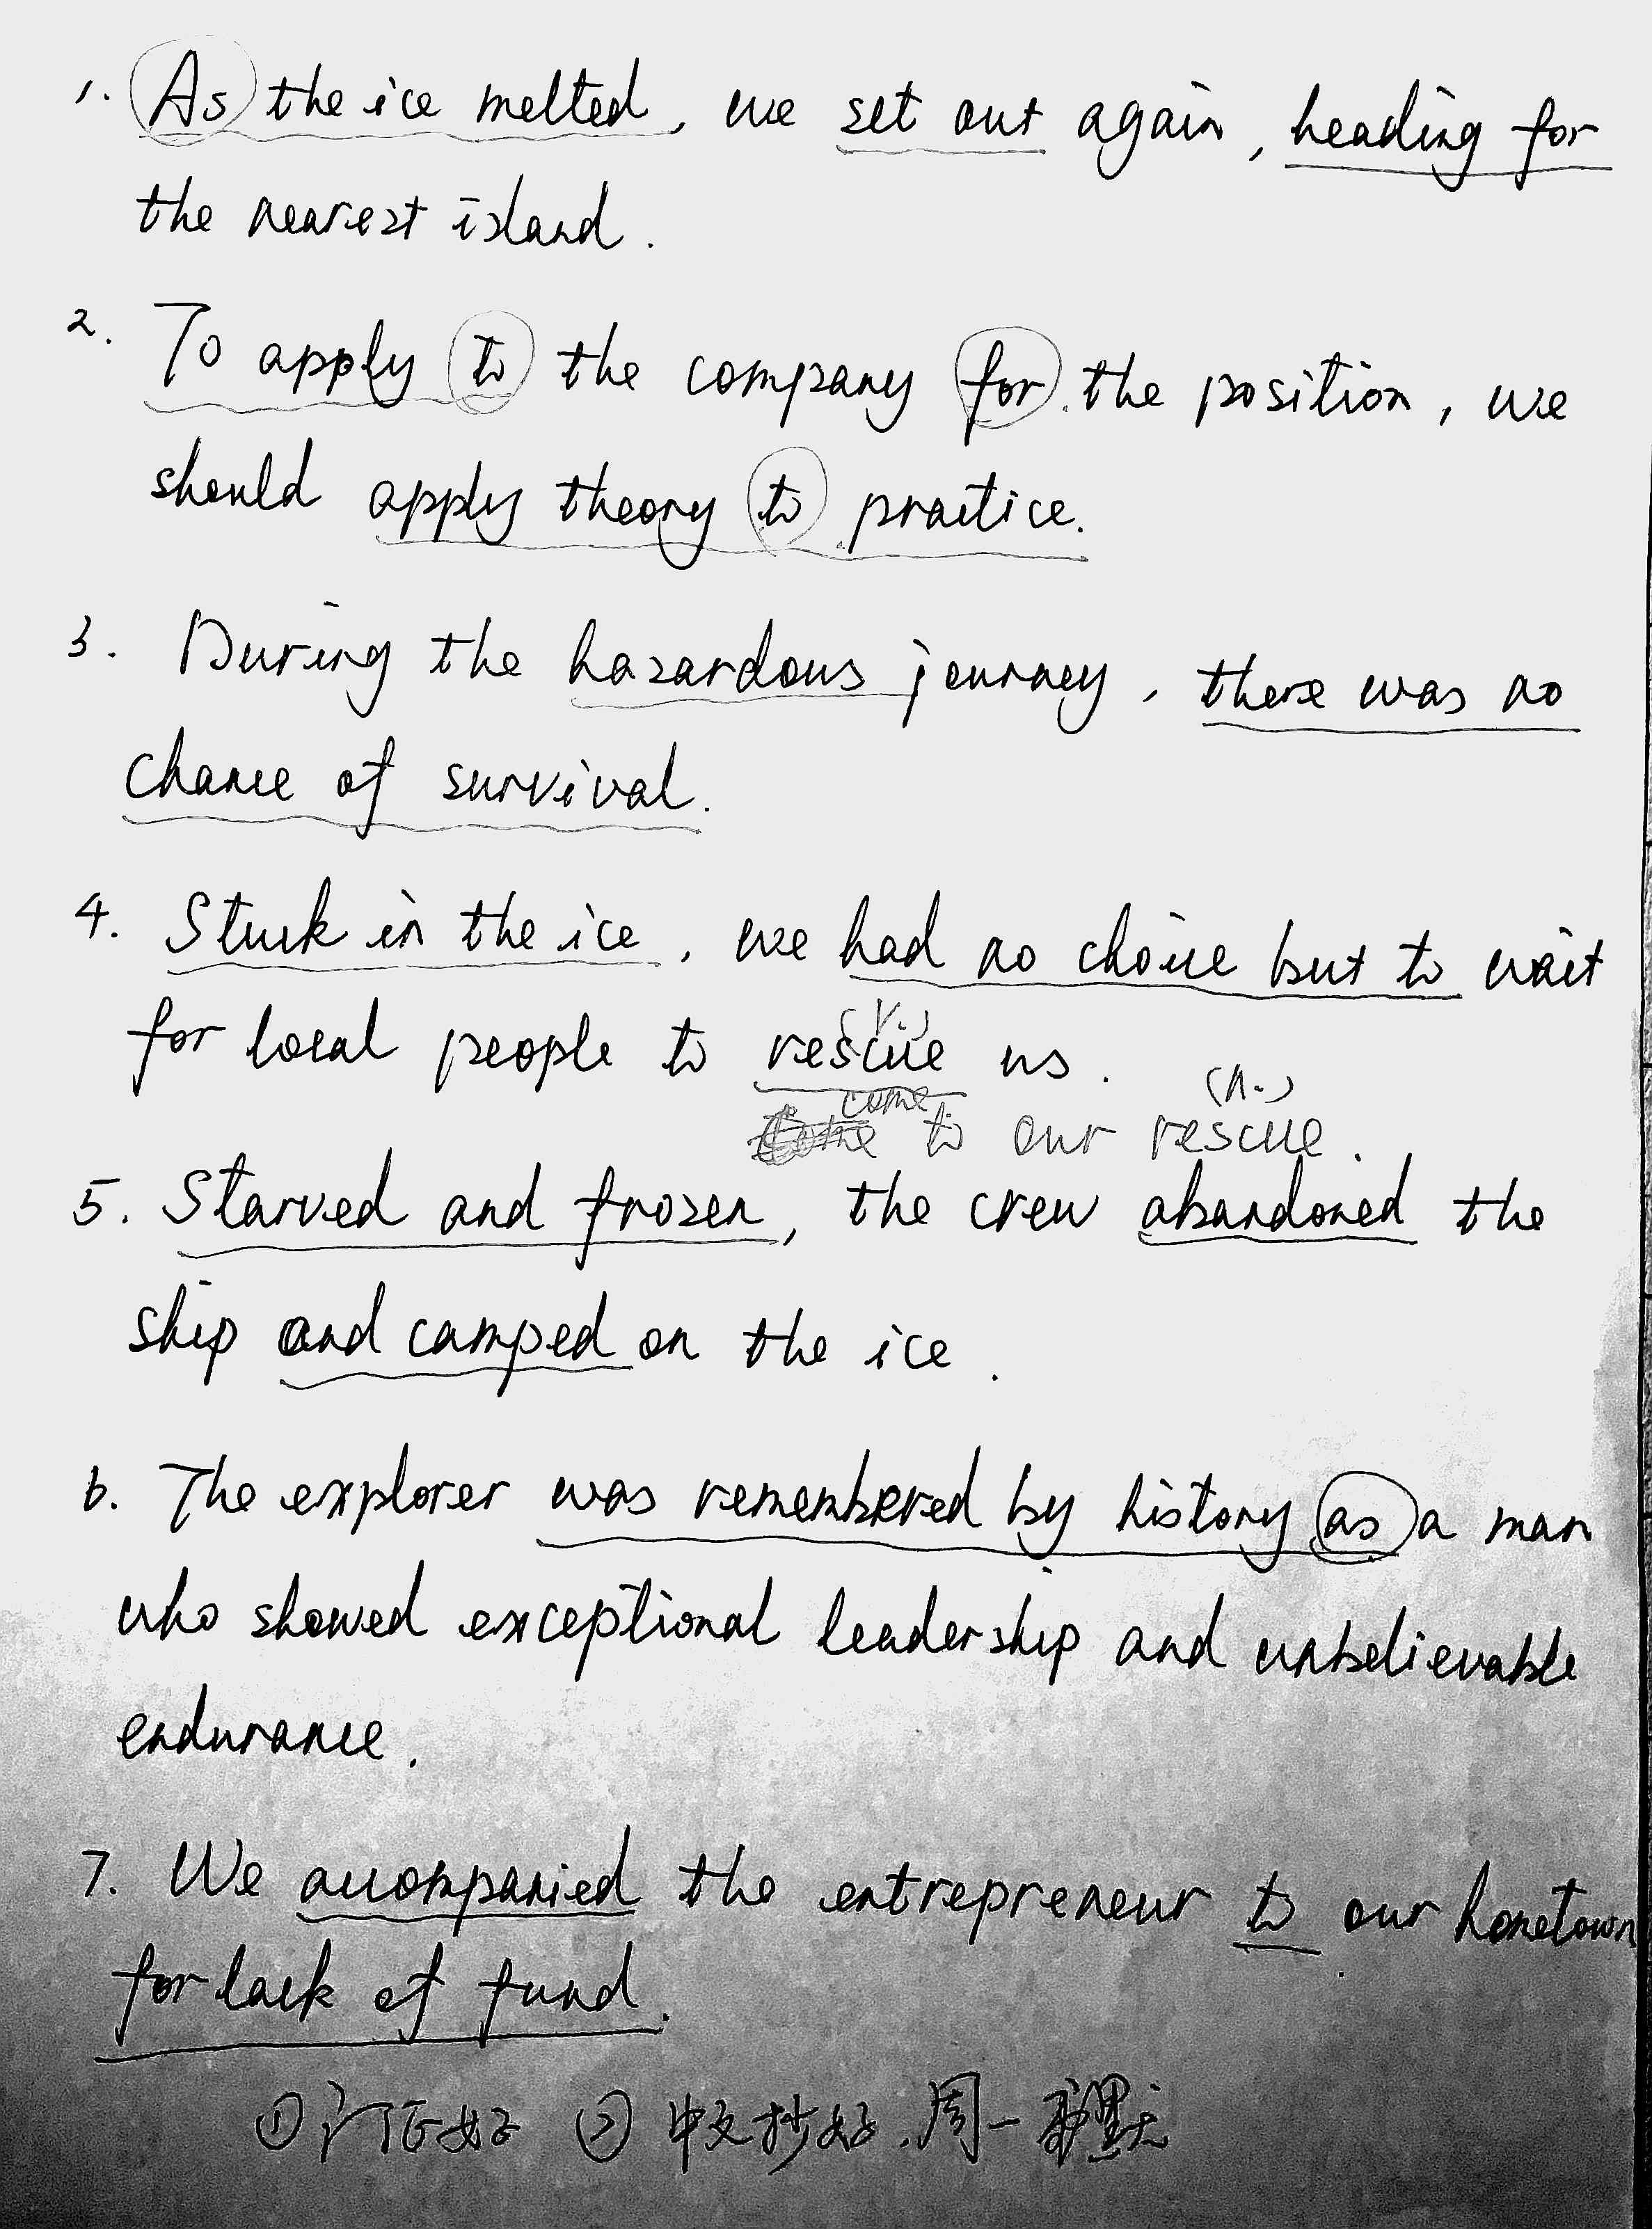 1. As the ice melted, we set out again, heading for
the nearest island.
2. To apply to the company for the position, we
should apply theory to practice.
3. During the hazardous journey, there was no
chance of survival.
4. Stuck in the ice, we had no choice but to wait
for local people to rescue us.
(v.)
come to our rescue.
(n.)
5. Starved and frozen, the crew abandoned the
ship and camped on the ice.
6. The explorer was remembered by history as a man
who showed exceptional leadership and unbelievable
endurance.
7. We accompanied the entrepreneur to our hometown
for lack of fund.
①订正好 ② 中文抄好,周一默